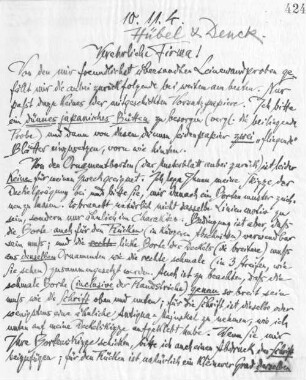 424
10. 11. 4.
Hübel & Denck.
Verehrliche Firma!
Von den mir freundlichst übersandten Leinwandproben ge-
fällt mir die anbei zurückfolgende bei weitem am besten. Nur
passt dazu keines der mitgeschickten Vorsatzpapiere. Ich bitte
ein dünnes japanisches Bütten zu besorgen (vergl. die beiliegende
Probe) und dann von diesem dünnen Seidenpapier zwei
Blätter einzulegen, vorn wie hinten.
Von den Ornamentborten (das Musterblatt anbei zurück) ist leider
keine für meinen Zweck geeignet. Ich lege Ihnen meine Skizze der
Deckelprägung bei und bitte Sie, mir darnach ein Borten zu
zu lassen. Es braucht natürlich nicht dasselbe zu
sein, sondern nur ähnlich im Charakter. Bedingung ist aber, daß
die Borte auch für den Rücken (in kürzeren) verwendbar
sein muß; und die Borte des Deckels (die breitere) muß
aus denselben Ornamenten wie die rechte schmale (in 3 Streifen, wie
Sie sehen) zusammengesetzt werden. Auch ist zu beachten, daß die
schmale Borte (inclusive der Randstriche) genau so breit sein
muß wie die Schrift oben und unten; für die Schrift ist dieselbe oder
wenigstens eine ähnliche Antiqua-Majuskel zu nehmen, wie ich
unten auf meine Deckelskizze aufgeklebt habe. Wenn Sie mir
Ihre schicken, bitte ich auch einen Abdruck der Schrift
beizufügen; für den Rücken ist natürlich ein kleinerer Grad derselben